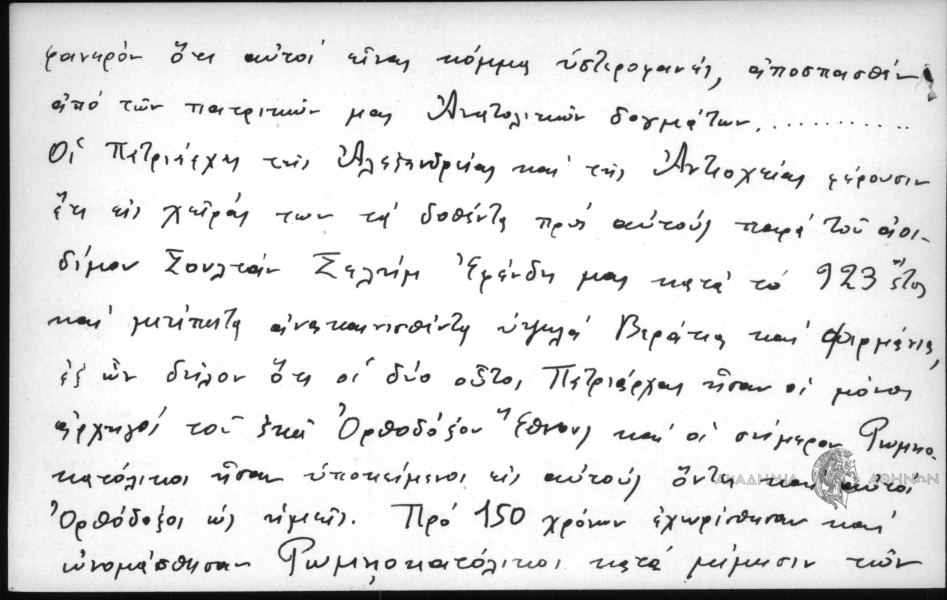 φανερὸν ὅτι αὐτοὶ εἶναι κόμμα ὑστεροφανές, ἀποσπασθὲν
ἀπὸ τῶν πατρικῶν μας Ἀνατολικῶν δογμάτων............
Οἱ Πατριάρχαι τῆς Ἀλεξανδρείας καὶ τῆς Ἀντιοχείας φέρουσιν
ἔτι εἰς χεῖράς των τὰ δοθέντα πρὸς αὐτοὺς παρὰ τοῦ ἀοι-
δίμου Σουλτὰν Σελὴμ Ἐφένδη μας κατὰ τὸ 923 ἔτος
καὶ μετέπειτα ἀνακαινισθέντα ὑψηλὰ Βεράτια καὶ Φιρμάνια,
ἐξ ὧν δῆλον ὅτι οἱ δύο οὗτοι Πατριάρχαι ἦσαν οἱ μόνοι
ἀρχηγοὶ τοῦ ἐκεῖ Ὀρθοδόξου Ἔθνους καὶ οἱ σήμερον Ρωμηο-
κατόλικοι ἦσαν ὑποκείμενοι εἰς αὐτοὺς ὄντες καὶ αὐτοὶ
Ὀρθόδοξοι ὡς ἡμεῖς. Πρὸ 150 χρόνων ἐχωρίσθησαν καὶ
ὠνομάσθησαν Ρωμηοκατόλικοι κατὰ μίμησιν τῶν
ΑΚΑΔΗΜΙΑ ΑΘΗΝΩΝ